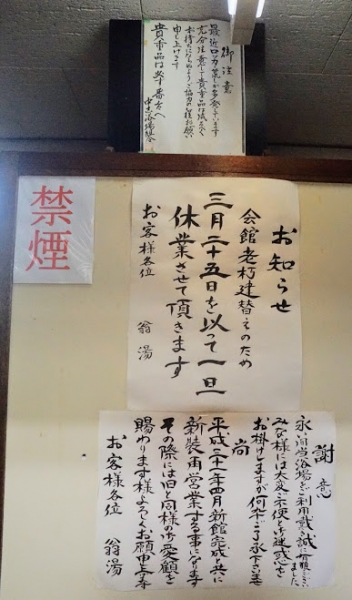 御注意
最近ロッカー荒しが多発しています
充分注意して貴重品は成るべく
お持ちにならぬようご協力の程お願い
申し上げます
貴重品は番台へ
禁煙
お知らせ
会館老朽建替えのため
三月二十五日を以って一旦
休業させて頂きます
お客様各位 翁湯
謝意
永い間当浴場をご利用戴き誠に有難とうございました
みな様には大変ご不便とご迷惑を
お掛けしますが何卒ご了承下さいませ
尚
平成二十一年四月新館完成と共に
新装再営業する事になります
その際には旧と同様の御愛顧を
賜わります様よろしくお願申上ます
お客様各位 翁湯